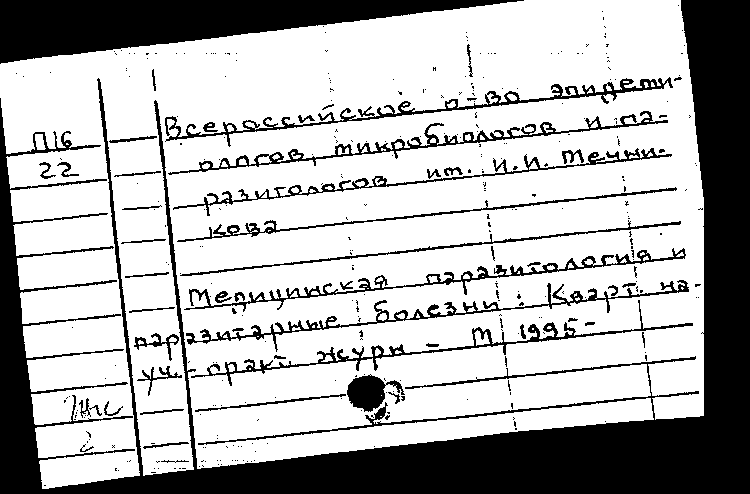 П16
22
Всероссийское о-во эпидеми-
ологов, микробиологов и па-
разитологов им. И.И. Мечни-
кова
Медицинская паразитология и
паразитарные болезни: Кварт. на-
уч.-практ. журн - М, 1995-